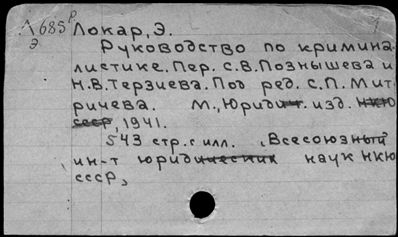 Л 685 р Локар, Э. 1
Э Руководство по кримина-
листике. Пер. С.В. Познышева и
Н.В. Терзиева. Под ред. С.П. Мит-
ричева. М., Юридит. изд. НКЮ
СССР, 1941.
543 стр. с илл. (Всесоюзный
ин-т юридических наук НКЮ
СССР)